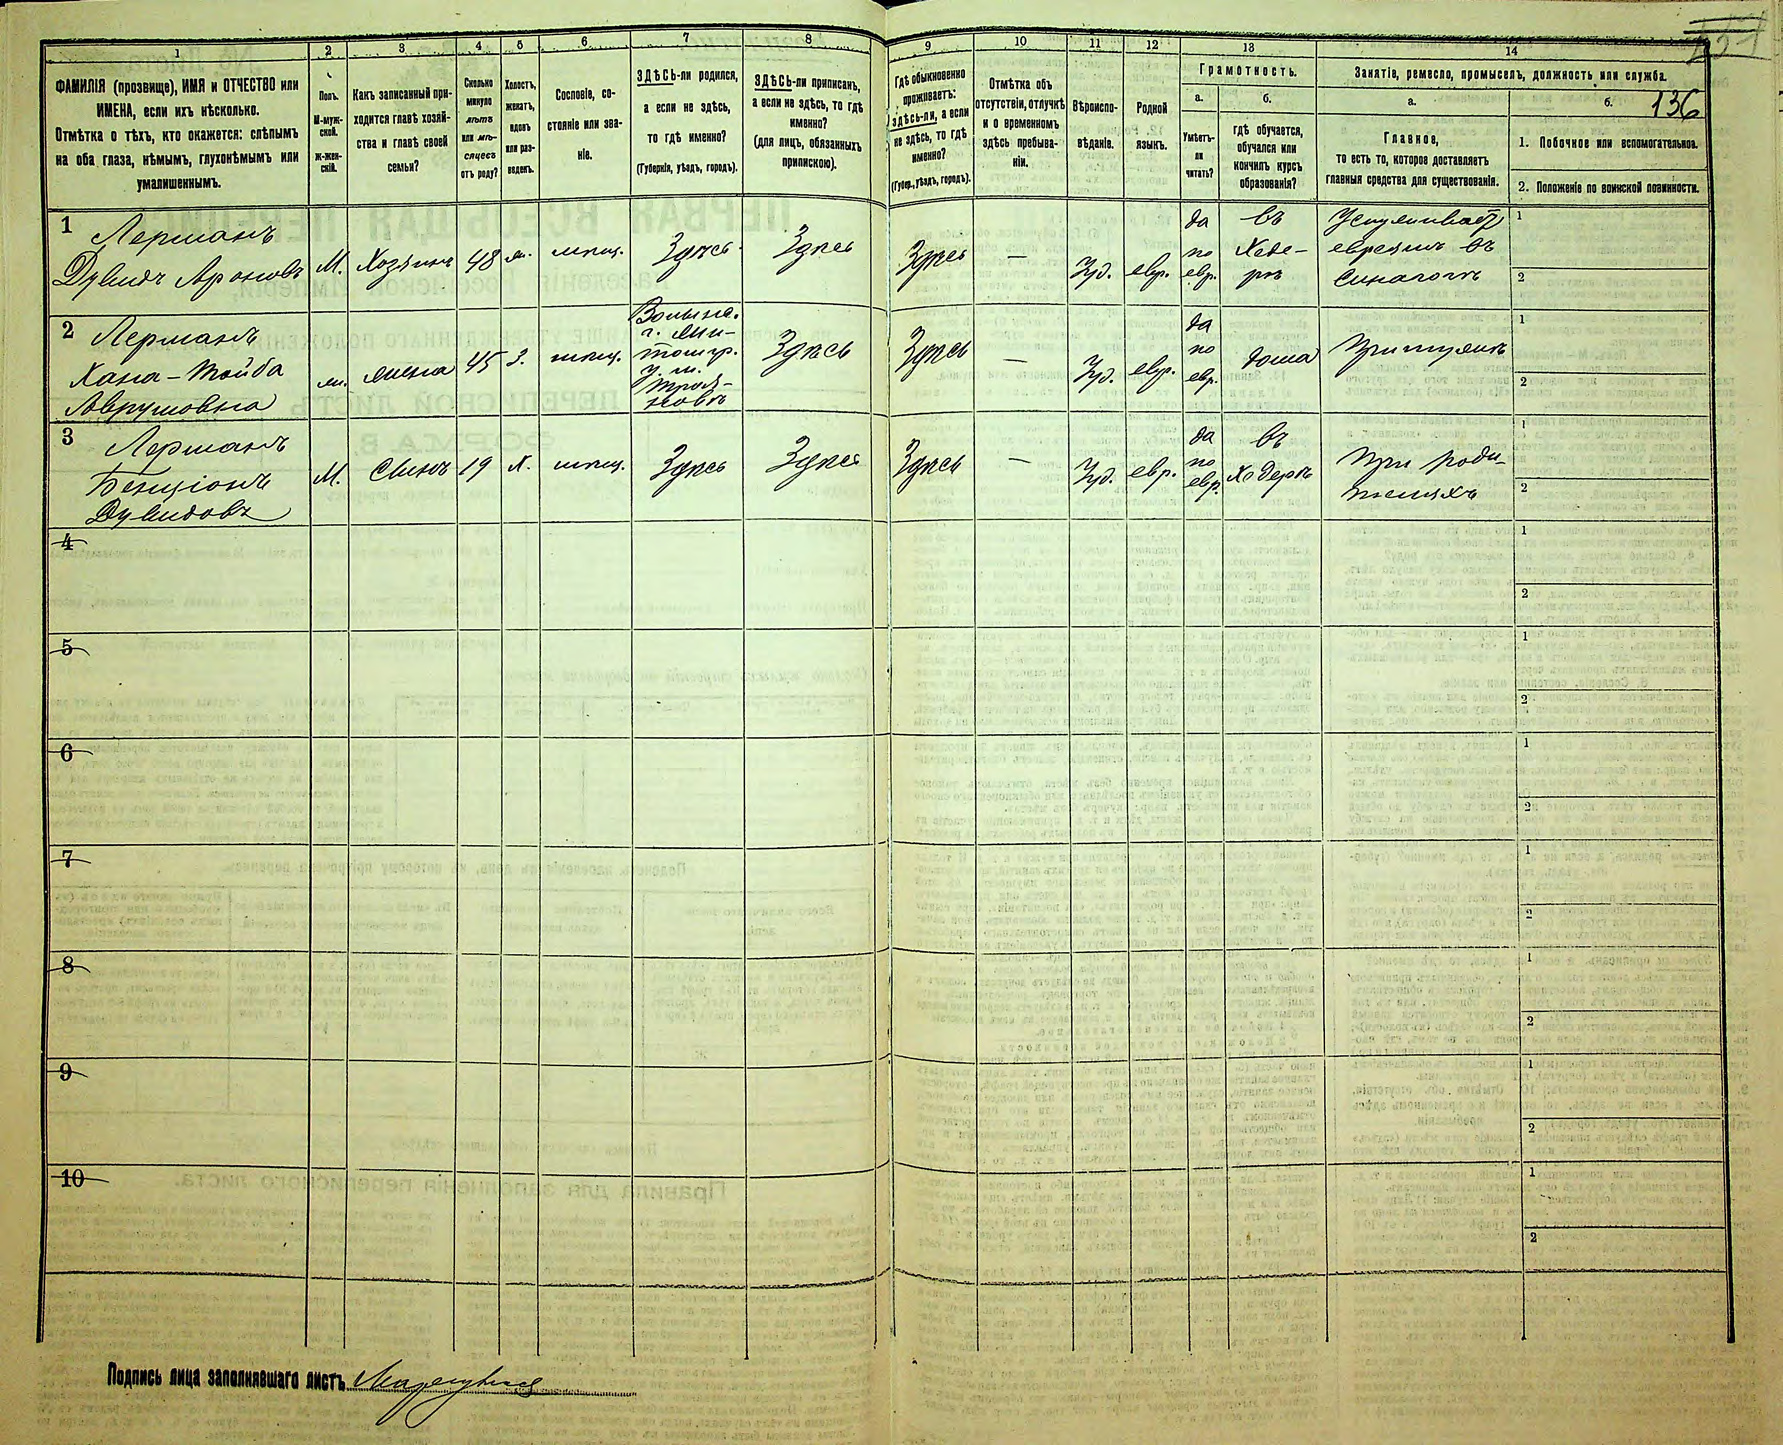 1 2 3 4 5 6 7 8 9 10 11 12 13 14
136
ФАМИЛІЯ (прозвище), ИМЯ и ОТЧЕСТВО или
ИМЕНА, если ихъ нѣсколько.
Отмѣтка о тѣхъ, кто окажется: слѣпымъ
на оба глаза, нѣмымъ, глухонѣмымъ или
умалишеннымъ.
Полъ.
М-муж-
ской.
Ж-жен-
скій.
Какъ записанный при-
ходится главѣ хозяй-
ства и главѣ своей
семьи?
Сколько
минуло
лѣтъ
или мѣ-
сяцевъ
отъ роду?
Холостъ,
женатъ,
вдовъ
или раз-
веденъ.
Сословіе, со-
стояніе или зва-
ніе.
ЗДѢСЬ-ли родился,
а если не здѣсь,
то гдѣ именно?
(Губернія, уѣздъ, городъ).
ЗДѢСЬ-ли приписанъ,
а если не здѣсь, то гдѣ
именно?
(для лицъ, обязанныхъ
припискою).
Гдѣ обыкновенно
проживаетъ:
здѣсь-ли, а если
не здѣсь, то гдѣ
именно?
(Губер., уѣздъ, городъ).
Отмѣтка объ
отсутствіи, отлучкѣ
и о временномъ
здѣсь пребыва-
ніи.
Вѣроиспо-
вѣданіе.
Родной
языкъ.
Грамотность.
а.
Умѣетъ-
ли
читать?
б.
гдѣ обучается,
обучался или
кончилъ курсъ
образованія?
Занятіе, ремесло, промыселъ, должность или служба.
а.
Главное,
то есть то, которое доставляетъ
главныя средства для существованія.
б.
1. Побочное или вспомогательное.
2. Положеніе по воинской повинности.
1
Лерманъ
Дувидъ Ароновъ
М.
Хозяинъ
48
ж.
мѣщ.
Здѣсь
Здѣсь
Здѣсь
—
Іуд.
евр.
да
по
евр.
въ
Хеде-
рѣ
Услуживает
евреямъ въ
синагогѣ
1
2
2
Лерманъ
Хана-Тойба
Аврумовна
ж.
жена
45
З.
мѣщ.
Волынс.
г. Жи-
томир.
у. м.
Троя-
новъ
Здѣсь
Здѣсь
—
Іуд.
евр.
да
по
евр.
дома
При мужѣ
1
2
3
Лерманъ
Бенціонъ
Дувидовъ
М.
Сынъ
19
Х.
мѣщ.
Здѣсь
Здѣсь
Здѣсь
—
Іуд.
евр.
да
по
евр.
въ
Хедерѣ
При роди-
теляхъ
1
2
4
1
2
5
1
2
6
1
2
7
1
2
8
1
2
9
1
2
10
1
2
Подпись лица заполнявшаго листъ